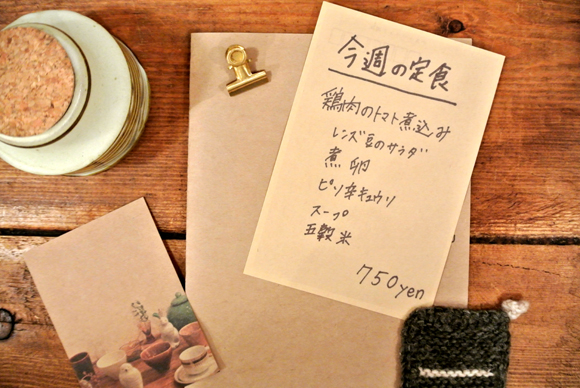 今週の定食
鶏肉のトマト煮込み
レンズ豆のサラダ
煮卵
ピリ辛キュウリ
スープ
五穀米
750yen